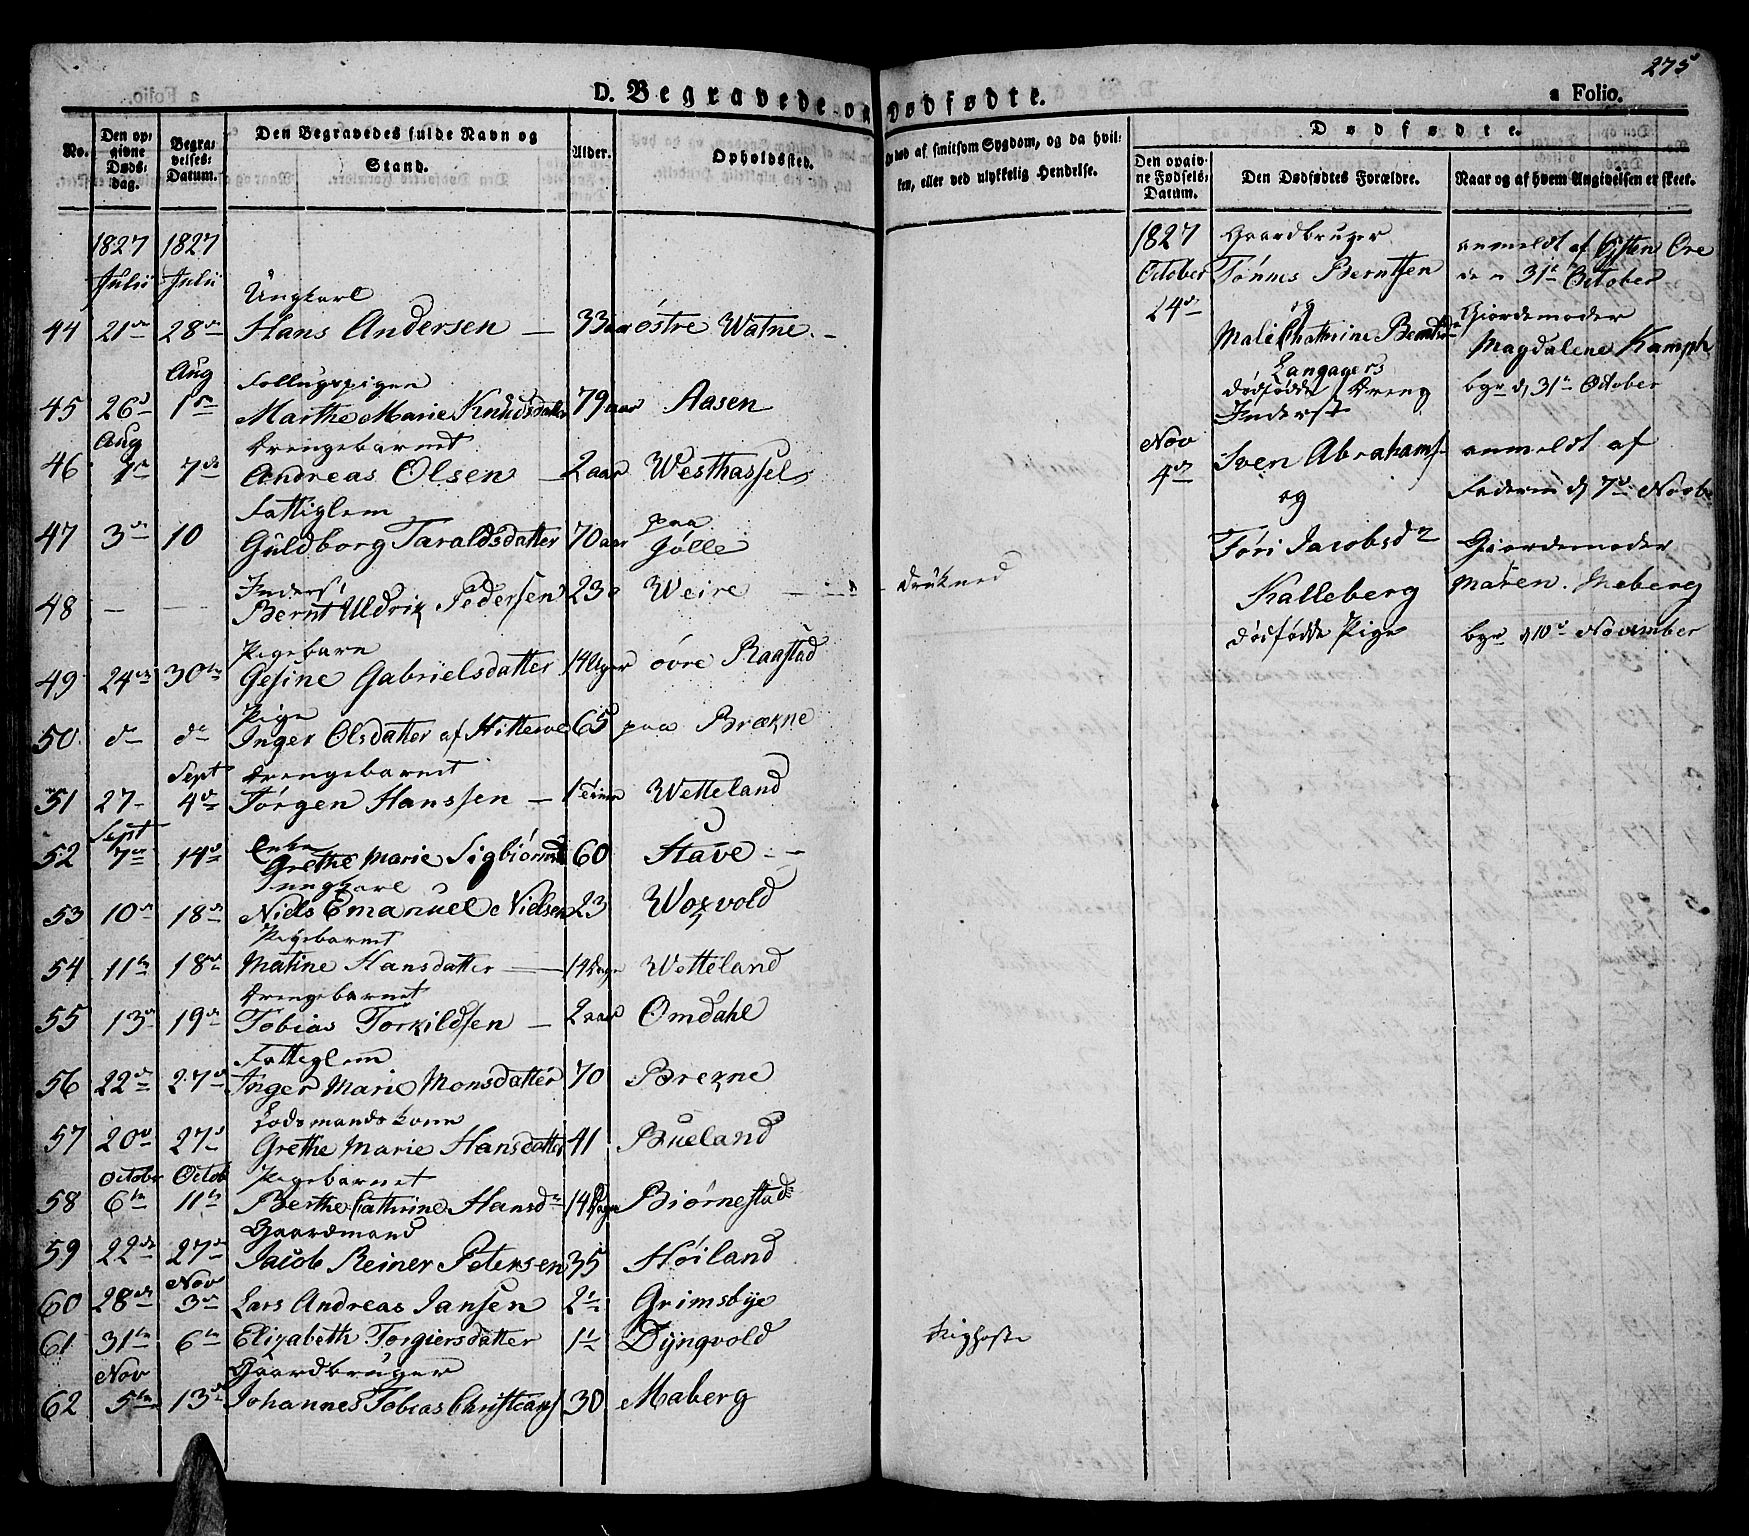 275
D. Begravede og Dødfødte.
a Folio.
No.
Den op-
givne
Døds-
dag.
Begra-
velses-
Datum.
Den Begravedes fulde Navn og
Stand.
Alder.
Opholdssted.
død af smitsom Sygdom, og da hvil-
ken, eller ved ulykkelig Hendelse.
Dødfødte.
Den opgiv-
ne Fødsels-
Datum.
Den Dødfødtes Forældre.
Naar og af hvem Angivelsen er skeet.
1827 1827
Julii Julii
Ungkarl
44 21de 28de Hans Andersen — 33 aar østre Watne —
Aug
Follugspigen
45 26d 1ste Marthe Marie Knudsdatter 79 aar Aasen
Aug
Drengebarnet
46 7de 7de Andreas Olsen — 2 aar Westhassel
Fattiglem
47 3de 10 Guldborg Taraldsdatter 70 aar paa Jølle
Inderst
48 — — Bernt Uldrik Pedersen 23 a Weire — drukned
Pigebarn
49 24de 30te Gesine Gabrielsdatter 14 Uger øvre Raastad
Pige
50 do do Inger Olsdatter af Hitteroe 65 paa Brækne
Sept
Drengebarnet
51 27 4de Tørgen Hanssen — 1 Wetteland
Sept
Enke
52 7de 14d Grethe Marie Sigbiørnsd 60 Stave —
Ungkarl
53 10de 18de Niels Emanuel Nielsen 23 Woxvold
Pigebarnet
54 11te 18de Matine Hansdatter — 14 Dage Wetteland
Drengebarnet
55 13de 19de Tobias Torkildsen — 2 aar Omdahl
Fattiglem
56 22de 27de Inger Marie Monsdatter 70 Brekne
Lodsmandskone
57 20de 27d Grethe Marie Hansdatter 41 Bueland
October Octob
Pigebarnet
58 6te 11te Berthe Cathrine Hansdr 14 Dage Biørnestad
Gaardmand
59 22de 27de Jacob Reiner Petersen 35 Høiland
Nov
60 28de 3de Lars Andreas Jansen 2 Grimsbye
61 31te 6te Elizabeth Torgiersdatter 1 Dyngvold Kighoste
Nov
Gaardbruger
62 5te 13de Johannes Tobias Christians 30 Maberg
1827 Gaardbruger anmeldt af Østen Ore
October Tønnes Berntsen den 31te October
24de og Giordemoder
Male Chathrine Berntsd Magdalene Kamph
Langagers
dødfødde Dreng bgr d 31te October
Inderst
Nov
4de Sven Abrahams anmeldt af
og Faderen d 7de Novb
Tøri Jacobsdr Giordemoder
Kalleberg Maren Meberg
dødfødde Pige bgr d 10de November